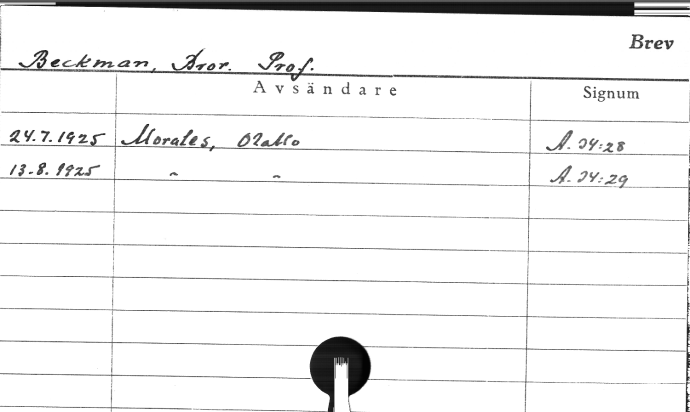 Brev
Beckman, Bror. Prof.
Avsändare Signum
24.7.1925 Morales, Olallo A. 34:28
13.8.1925 " " A. 34:29